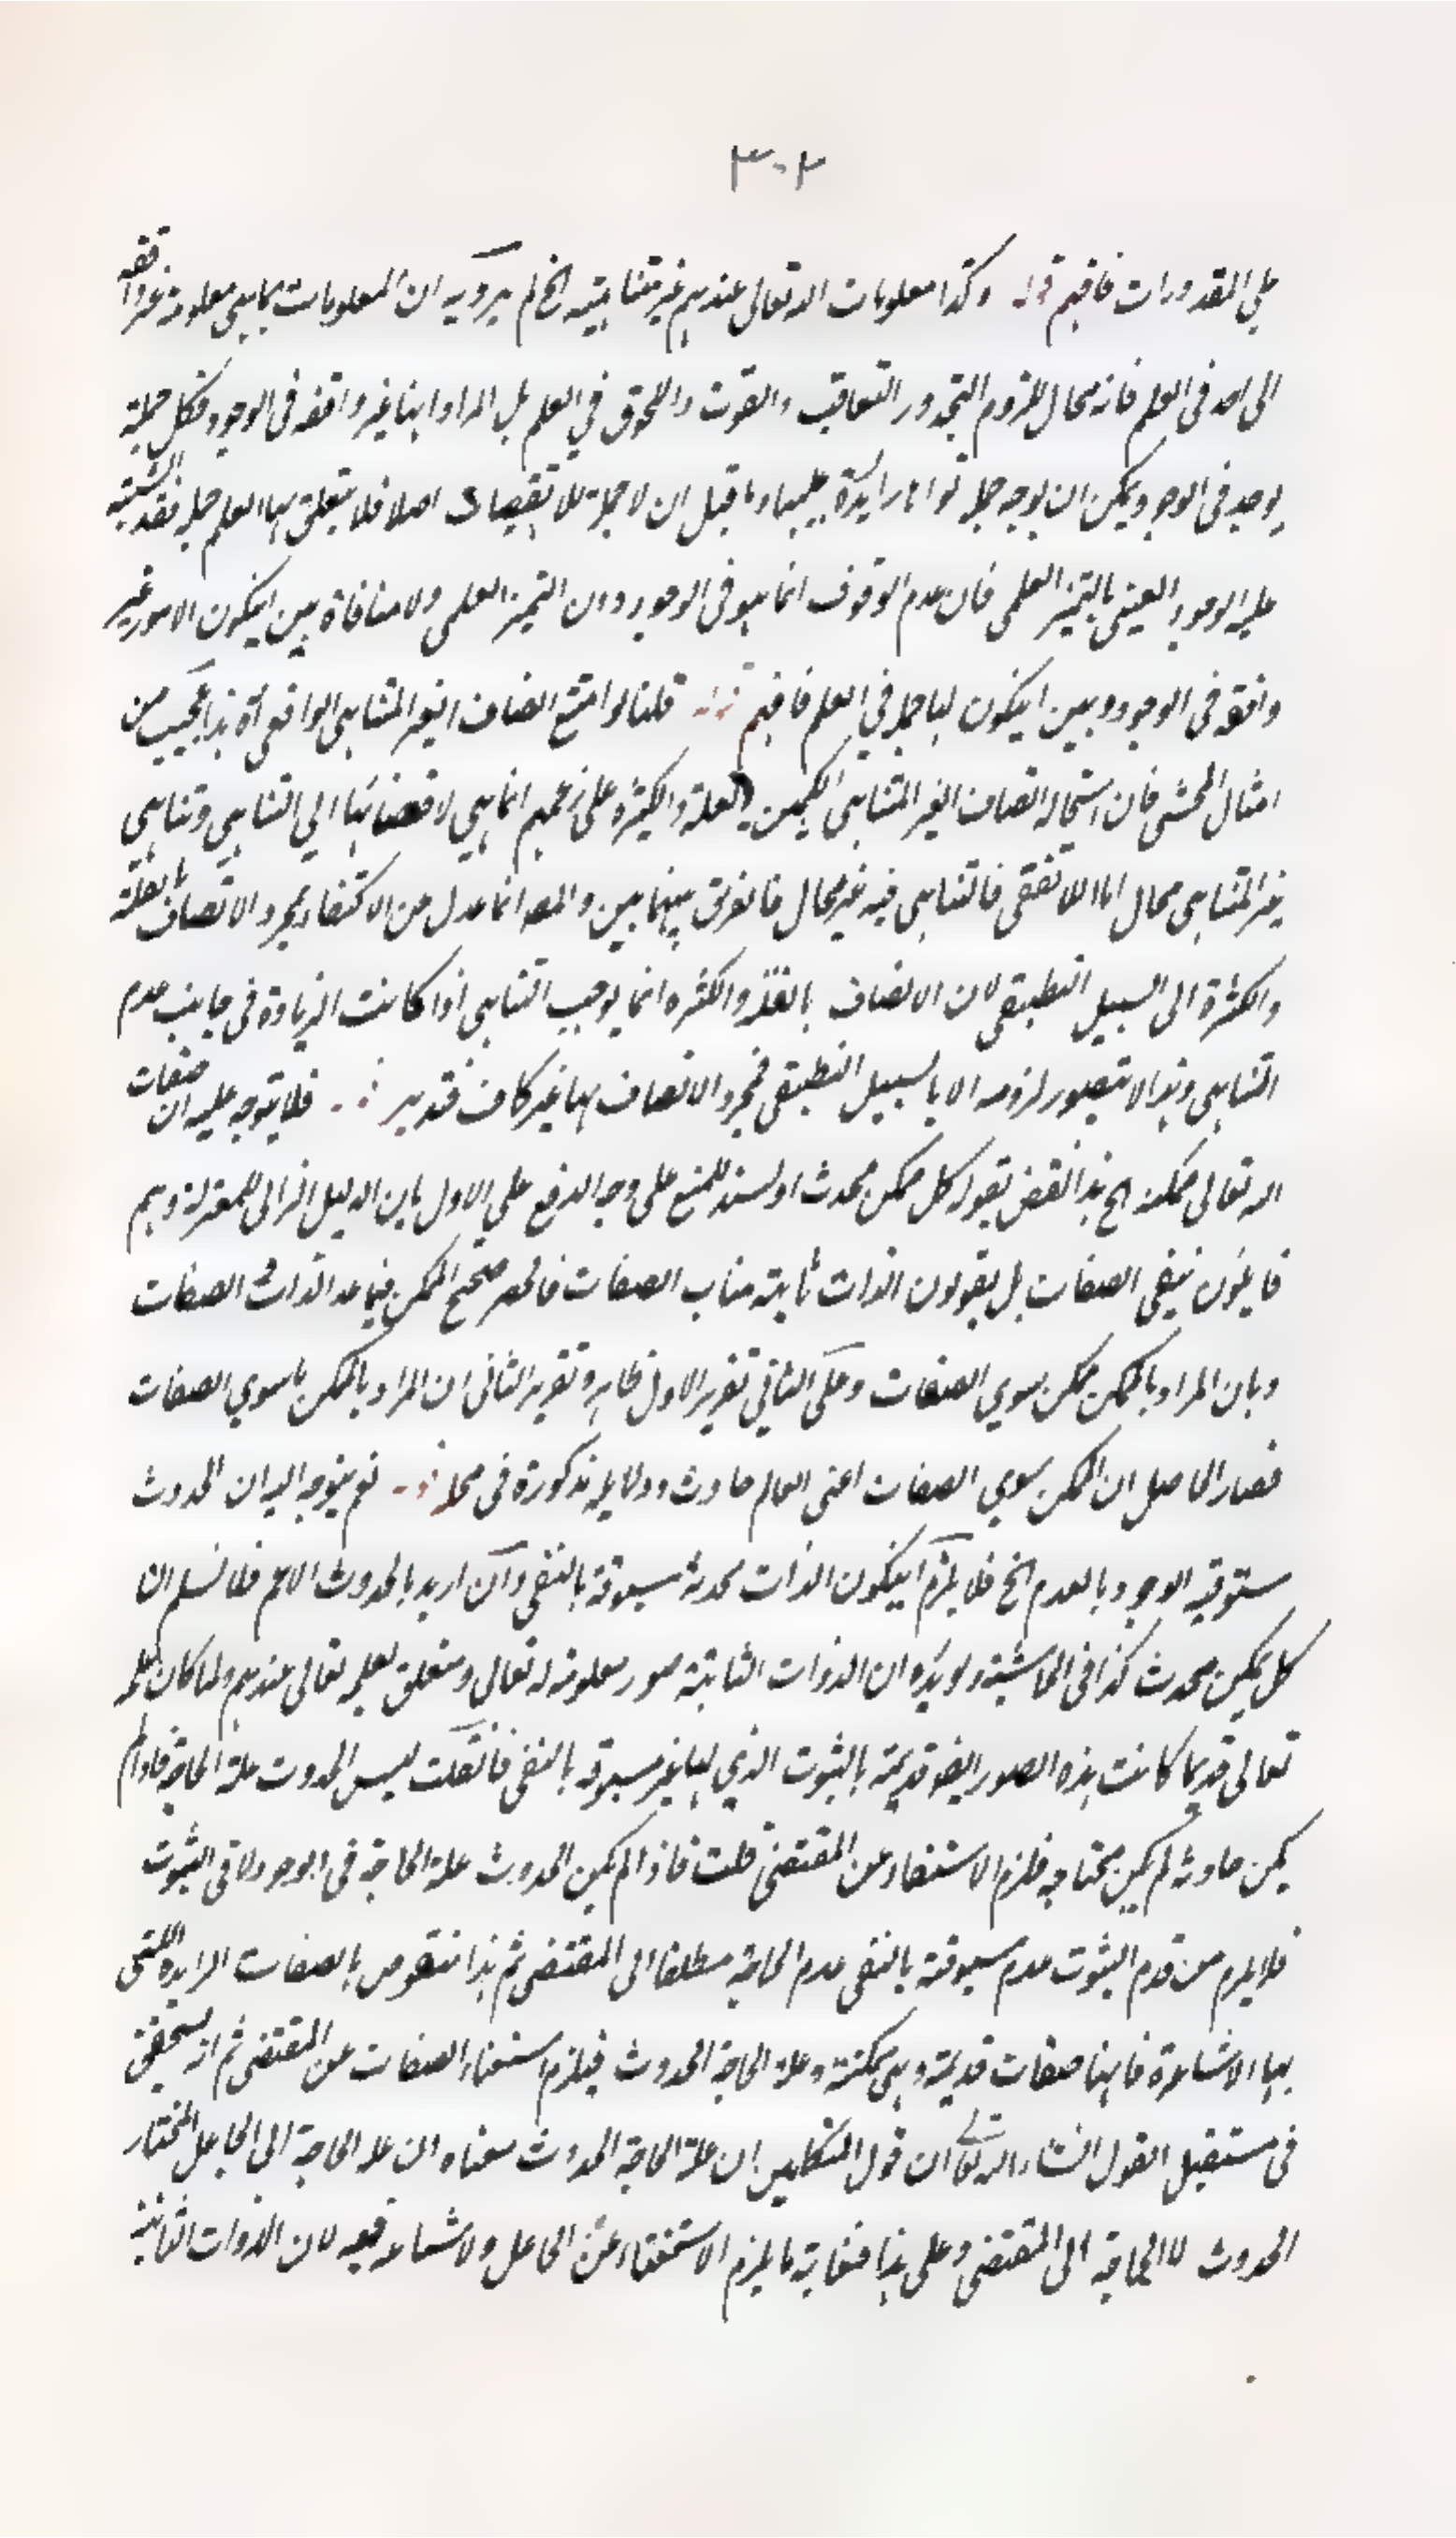 ٣٠٢
على المقدورات فافهم قوله وكذا معلومات الله تعالى عندهم غير متناهية الخ لم يرد به ان المعلومات بما هي معلومة غير واقفة
الى الحد في العلم فانه محال للزوم التجدد والتعاقب والفوت واللحوق في العلم بل المراد انها غير واقفة في الوجود فكل جملة
يوجد في الوجود ويمكن ان يوجد جملة زايدة عليها وما قيل ان لا جملة للا تقفيات اصلا فلا يتعلق بها العلم جملة فقد اشتبه
عليه الوجود العيني بالتميز العلمي فان عدم الوقوف انما هو في الوجود دون التميز العلمي ولا منافاة بين ان يكون الامور غير
واقفة في الوجود وبين ان يكون لها جملة في العلم فافهم قوله قلنا لو امتنع اتصاف الغير المتناهي الواقعي آه هذا عجيب من
امثال المحشي فان استحالة اتصاف الغير المتناهي الكمين بالقلة والكثرة على زعمهم انما هي لاقتضائها الى التناهي وتناهي
غير المتناهي محال اما اللا تقفي فالتناهي فيه غير محال فالفرق بينهما بين والمص انما عدل من الاكتفاء بمجرد الاتصاف بالقلة
والكثرة الى السبيل التطبيقي لان الاتصاف بالقلة والكثرة انما يوجب التناهي اذا كانت الزيادة في جانب عدم
التناهي وهذا لا يتصور لزومه الا بالسبيل التطبيقي فمجرد الاتصاف بها غير كاف فتدبر قوله فلا يتوجه عليه ان صفات
الله تعالى ممكنة الخ هذا نقض بقوله كل ممكن محدث او لسند للمنع على وجه الدفع على الاول بان الدليل الزامي للمعتزلة وهم
قايلون بنفي الصفات بل يقولون الذات نايبة مناب الصفات فالحصر صحيح الممكن فيما عدا الذات والصفات
وبان المراد بالممكن ممكن سوى الصفات وعلى الثاني تقرير الاول ظاهر وتقرير الثاني ان المراد بالممكن ما سوى الصفات
فصار الحاصل ان الممكن سوى الصفات اعني العالم حادث ودلايله مذكورة في محله قوله نعم يتوجه اليه ان الحدوث
مسبوقية الوجود بالعدم الخ فلا يلزم ان يكون الذات محدثة مسبوقة بالنفي وان اريد بالحدوث الاعم فلا نسلم ان
كل ممكن محدث كذا في الحاشية ولو يؤيده ان الذوات الثابتة صور معلومة له تعالى ومتعلق لعلمه تعالى عندهم ولما كان علمه
تعالى قديما كانت هذه الصور ايضا قديمة بالثبوت الذي لها غير مسبوقة بالنفي فان قلت ليس الحدوث علة الحاجة فاذا لم
يكن حادثة لم يكن محتاجة فلزم الاستغناء عن المقتضي قلت فاذا لم يكن الحدوث علة الحاجة في الوجود لا في الثبوت
فلا يلزم من قدم الثبوت عدم مسبوقيته بالنفي عدم الحاجة مطلقا الى المقتضي ثم هذا منقوض بالصفات الزايدة التي
بها الاشاعرة فانها صفات قديمة وهي ممكنة وعلة الحاجة الحدوث فيلزم استغناء الصفات عن المقتضي ثم انه سيتحقق
في مستقبل القول انشاء الله تعالى ان قول المتكلمين ان علة الحاجة الحدوث معناه ان علة الحاجة الى الجاعل المختار
الحدوث لا الحاجة الى المقتضي وعلى هذا فغاية ما يلزم الاستغناء عن الجاعل ولا شناعة فيه لان الذوات الثابتة